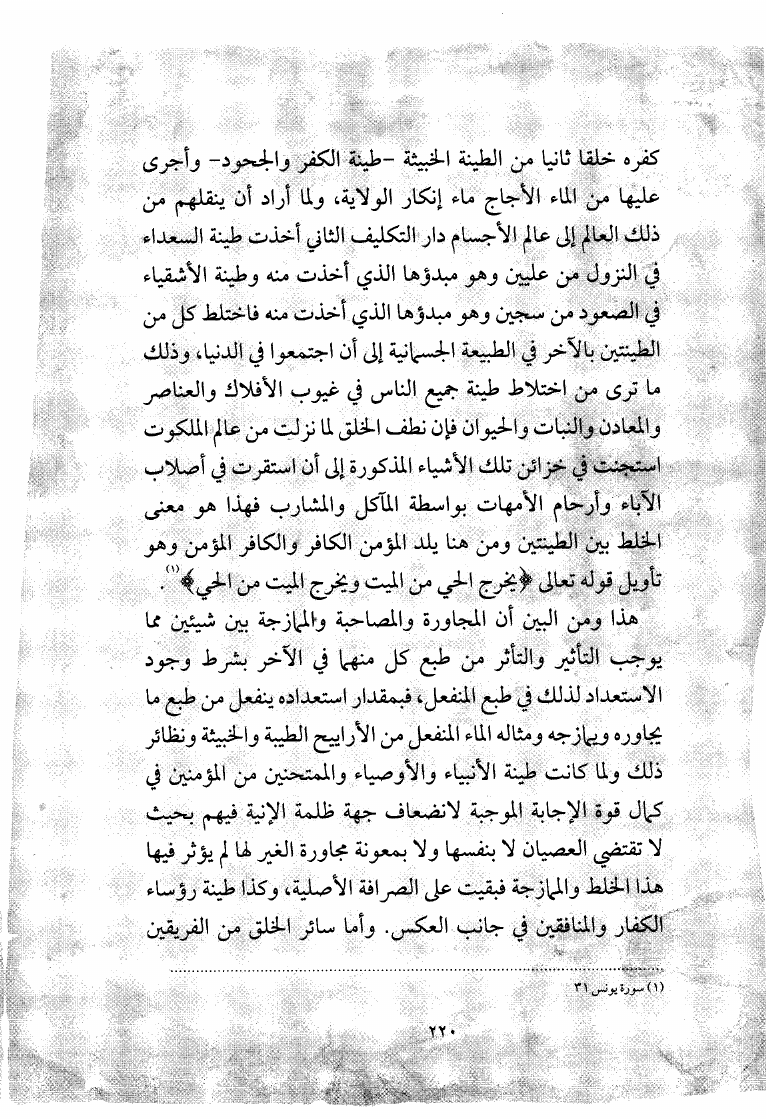 كفره خلقا ثانيا من الطينة الخبيثة -طينة الكفر والجحود- وأجرى
عليها من الماء الأجاج ماء إنكار الولاية، ولما أراد أن ينقلهم من
ذلك العالم إلى عالم الأجسام دار التكليف الثاني أخذت طينة السعداء
في النزول من عليين وهو مبدؤها الذي أخذت منه وطينة الأشقياء
في الصعود من سجين وهو مبدؤها الذي أخذت منه فاختلط كل من
الطينتين بالآخر في الطبيعة الجسمانية إلى أن اجتمعوا في الدنيا، وذلك
ما ترى من اختلاط طينة جميع الناس في غيوب الأفلاك والعناصر
والمعادن والنبات والحيوان فإن نطف الخلق لما نزلت من عالم الملكوت
استجنت في خزائن تلك الأشياء المذكورة إلى أن استقرت في أصلاب
الآباء وأرحام الأمهات بواسطة المآكل والمشارب فهذا هو معنى
الخلط بين الطينتين ومن هنا يلد المؤمن الكافر والكافر المؤمن وهو
تأويل قوله تعالى ﴿يخرج الحي من الميت ويخرج الميت من الحي﴾(١).
هذا ومن البين أن المجاورة والمصاحبة والممازجة بين شيئين مما
يوجب التأثير والتأثر من طبع كل منهما في الآخر بشرط وجود
الاستعداد لذلك في طبع المنفعل، فبمقدار استعداده ينفعل من طبع ما
يجاوره ويمازجه ومثاله الماء المنفعل من الأراييح الطيبة والخبيثة ونظائر
ذلك ولما كانت طينة الأنبياء والأوصياء والممتحنين من المؤمنين في
كمال قوة الإجابة الموجبة لانضعاف جهة ظلمة الإنية فيهم بحيث
لا تقتضي العصيان لا بنفسها ولا بمعونة مجاورة الغير لها لم يؤثر فيها
هذا الخلط والممازجة فبقيت على الصرافة الأصلية، وكذا طينة رؤساء
الكفار والمنافقين في جانب العكس. وأما سائر الخلق من الفريقين
(١) سورة يونس ٣١
٢٢٠